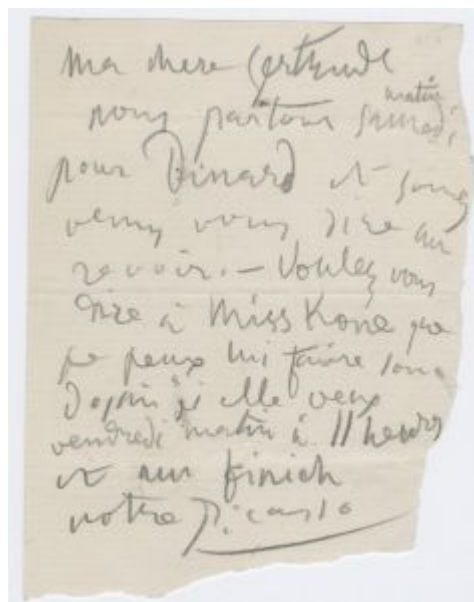 Ma chere Gertrude
nous partons samedi matin
pour Dinard et somes
venus vous dire au
revoir. — Voulez vous
dire à Miss Kone que
je peux lui faire son
dessin si elle veux
vendredi matin à 11 heures
et
votre Picasso